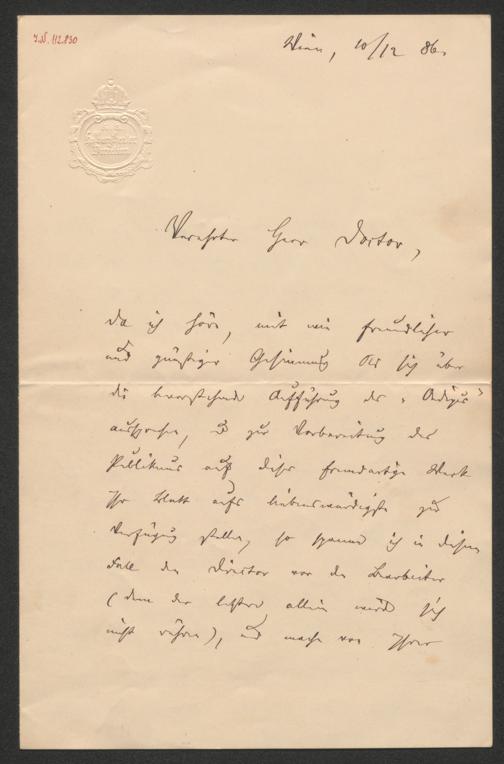 I.N. 112.830
Wien, 10/12 86.
Verehrter Herr Doctor,
Da ich höre, mit wie freundlicher
und günstiger Gesinnung Sie sich über
die bevorstehende Aufführung des "Ödipus"
aussprechen, u zur Vorbereitung des
Publikums auf dieses fremdartige Werk
Ihr Blatt aufs liebenswürdigste zur
Verfügung stellen, so spanne ich in diesem
Falle den Director vor den Bearbeiter
(denn der letztere allein würde sich
nicht rühren), und mache von Ihrer